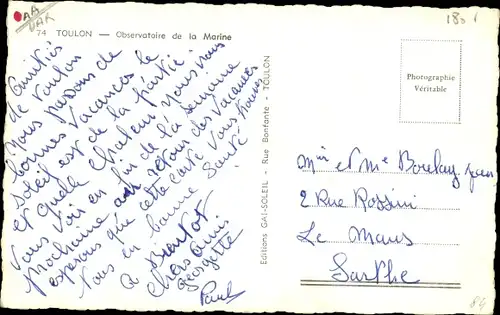 AA
VAR
180 F
74 TOULON — Observatoire de la Marine
Amitiés
de Toulon
nous passons de
bonnes vacances le
soleil est de la partie
et quelle chaleur nous nous
vous voir en fin de la semaine
prochaine au retour des vacances
espérons que cette carte vous trouvera
tous en bonne santé
a Biantot
chers amis
Georgette
Paul
Editions GAI-SOLEIL - Rue Bonfante - TOULON
Photographie
Véritable
et Me Boulay Jean
2 Rue Rossini
Le Mans
Sarthe